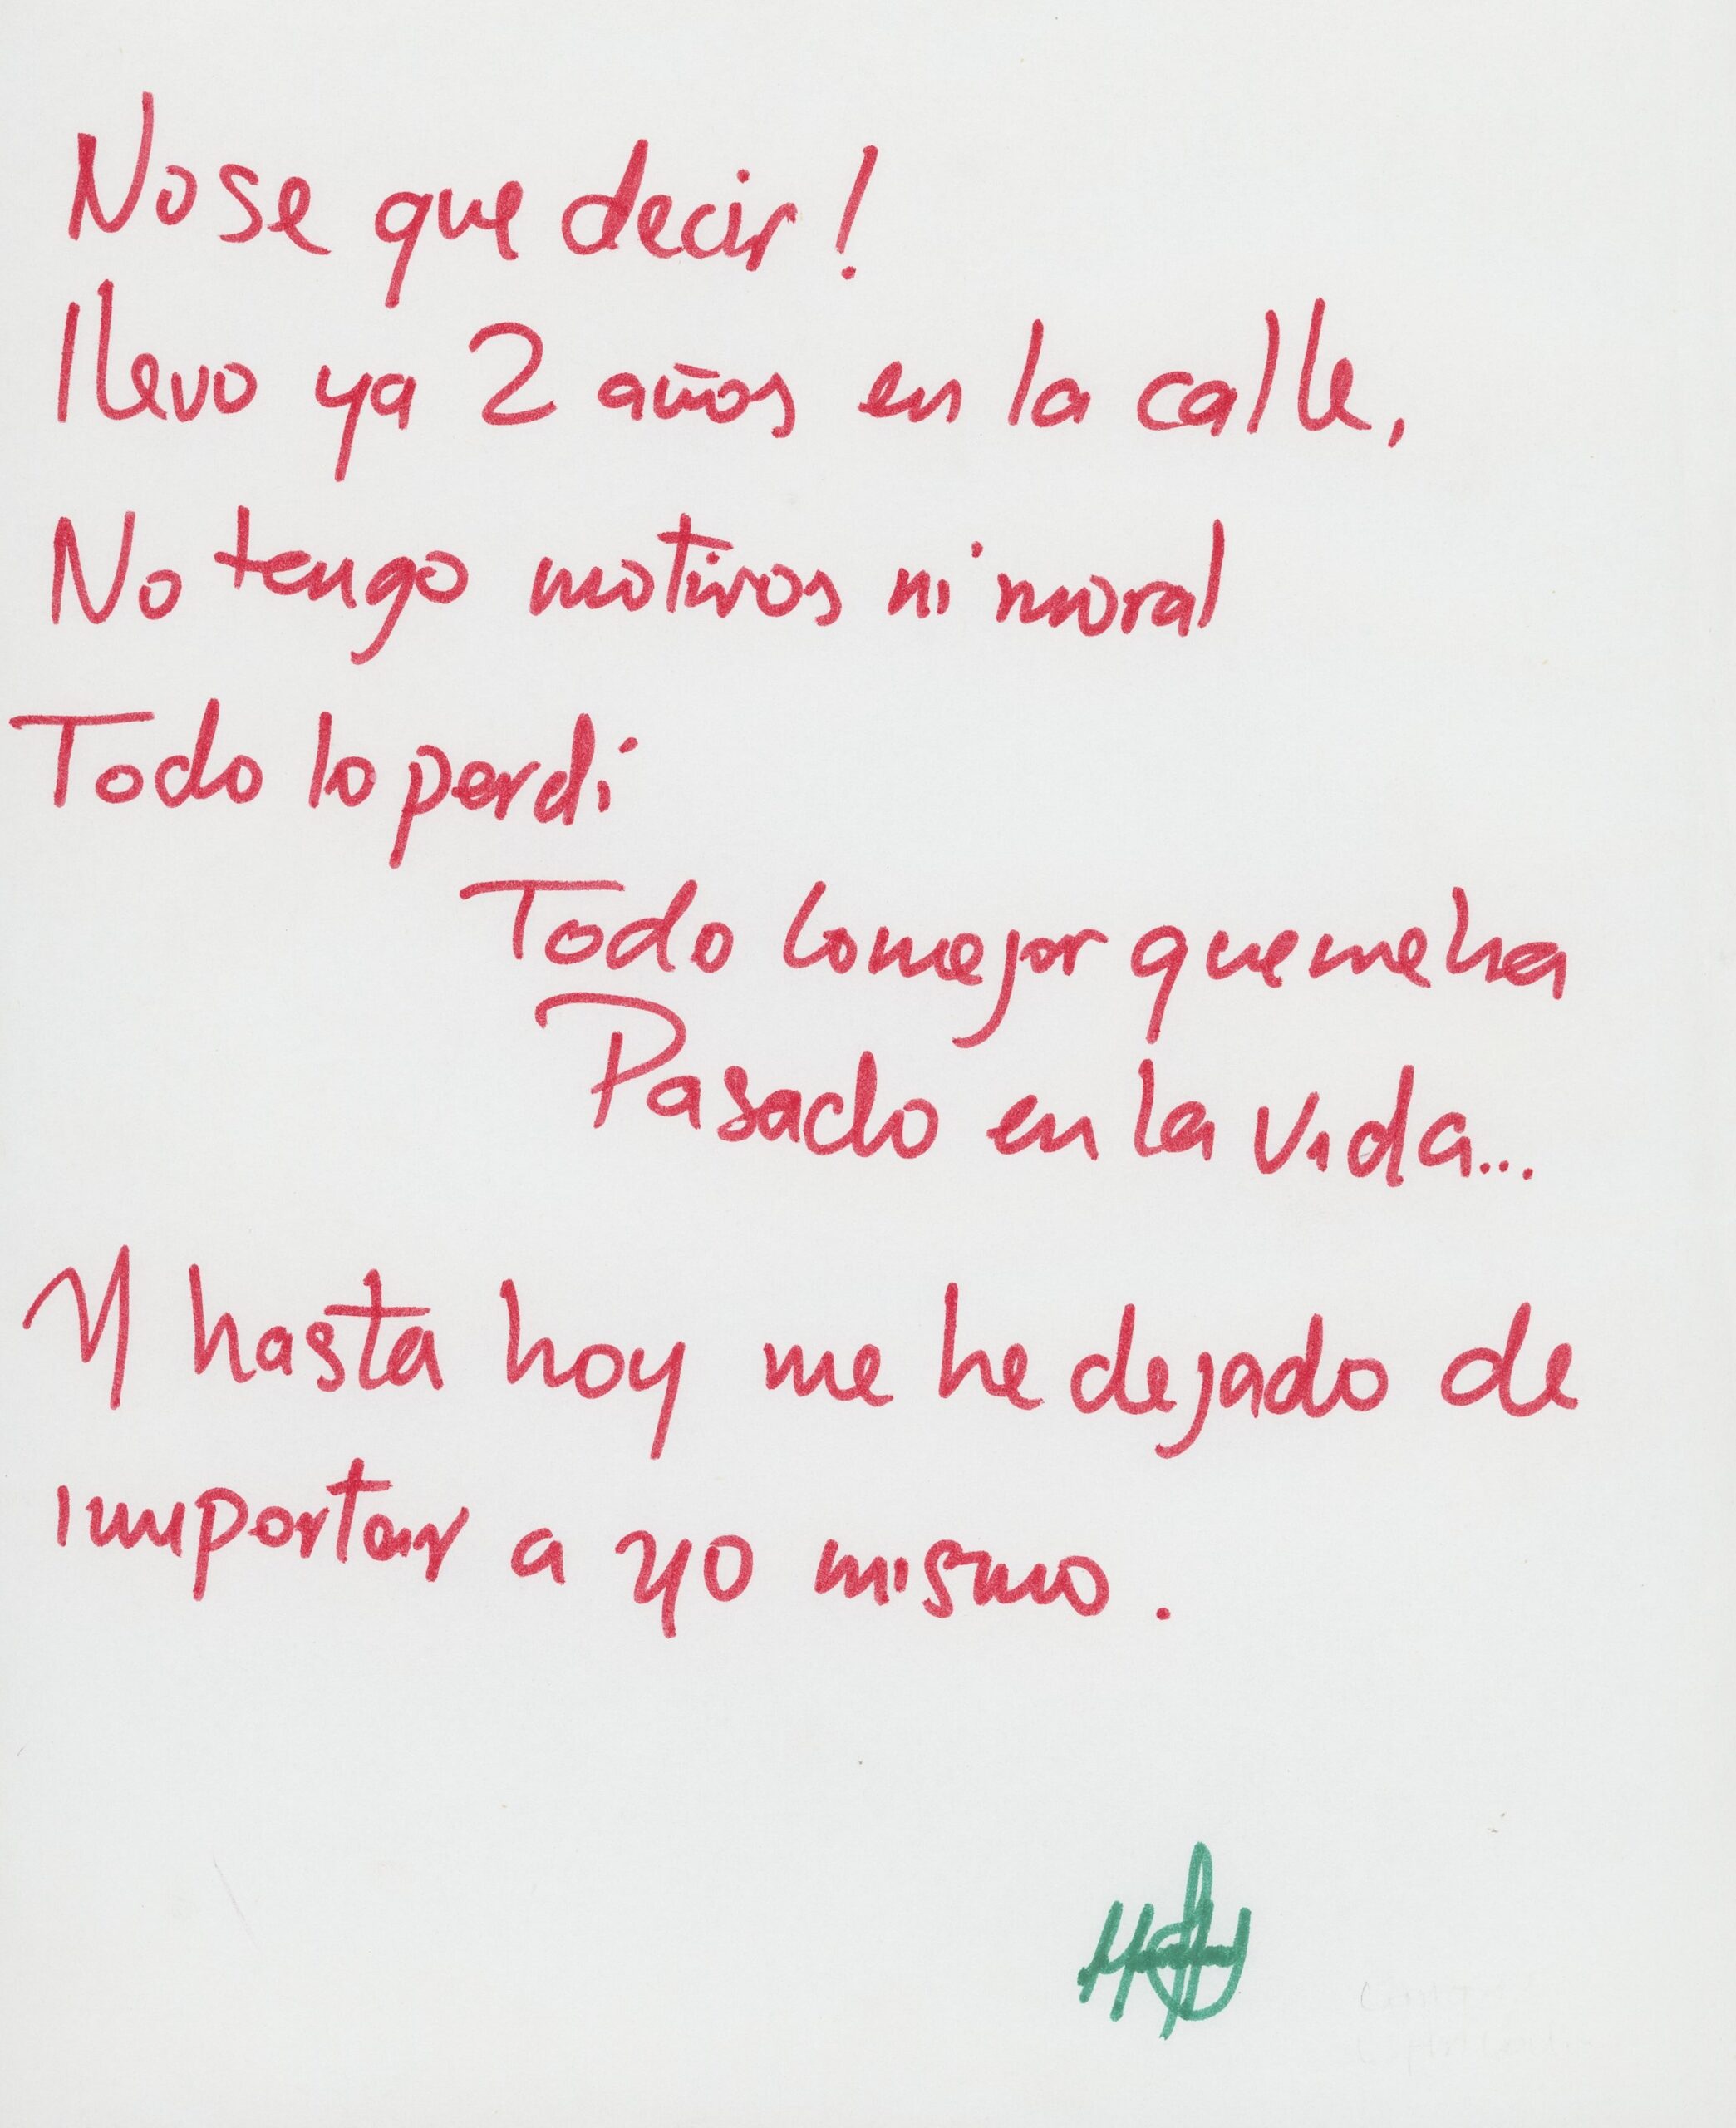 No se que decir!
llevo ya 2 años en la calle,
No tengo motivos ni moral
Todo lo perdí
Todo lo mejor que me ha
Pasado en la vida...
Y hasta hoy me he dejado de
importar a yo mismo.